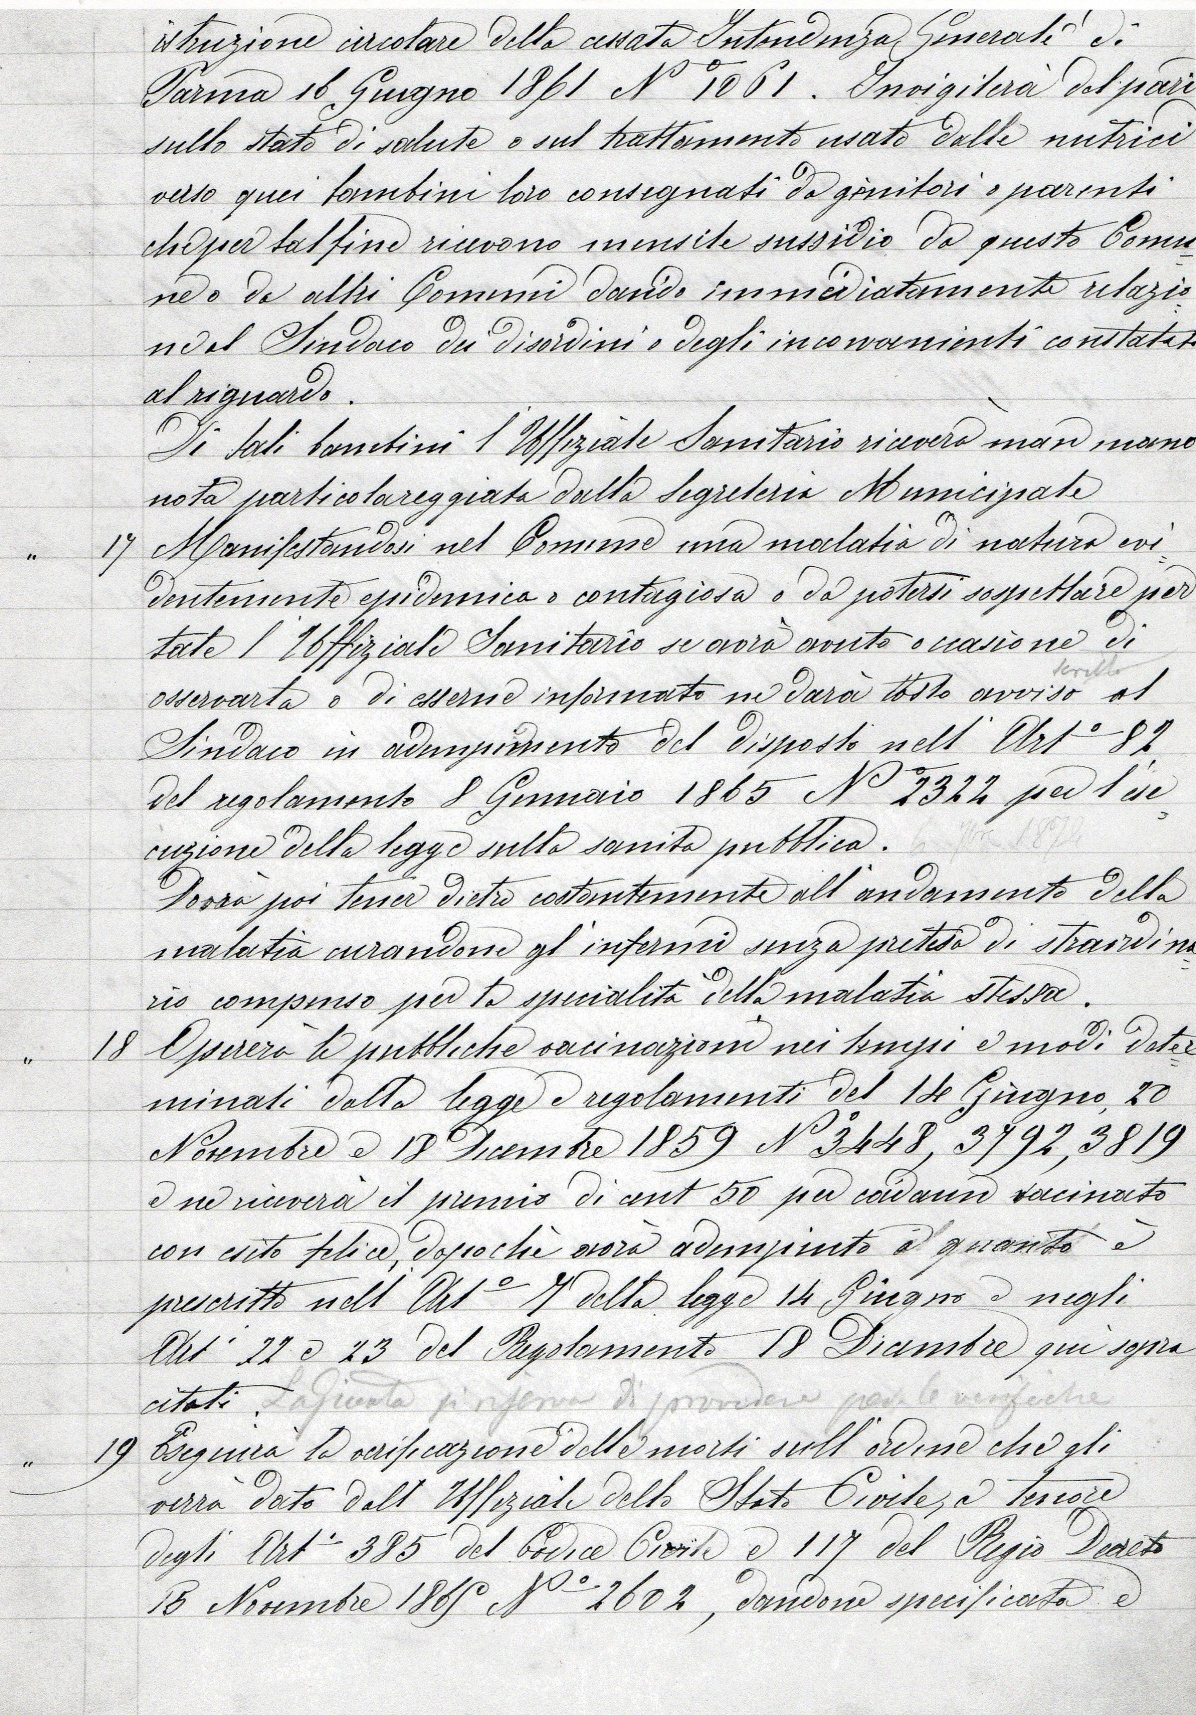 istruzione circolare della cessata Intendenza Generale di
Parma 16 Giugno 1861 N° 1061. Invigilerà del pari
sullo stato di salute e sul trattamento usato dalle nutrici
verso quei bambini loro consegnati da genitori o parenti
che per tal fine ricevono mensile sussidio da questo Comu=
ne o da altri Comuni dando immediatamente relazio=
ne al Sindaco dei disordini e degli inconvenienti constatati
al riguardo.
Di tali bambini l'Uffiziale Sanitario riceverà man mano
nota particolareggiata dalla Segreteria Municipale
" 17 Manifestandosi nel Comune una malatia di natura evi=
dentemente epidemica o contagiosa o da potersi sospettare per
tale l'Uffiziale Sanitario se avrà avuto occasione di
scritto
osservarla o di esserne informato ne darà tosto avviso al
Sindaco in adempimento del disposto nell'Art° 82
del regolamento 8 Gennaio 1865 N° 2322 per l'ese=
cuzione della legge sulla sanità pubblica. 6 7bre 1874
Dovrà poi tener dietro costantemente all'andamento della
malatia curandone gl'infermi senza pretesa di straordina=
rio compenso per la specialità della malatia stessa.
" 18 Opererà le pubbliche vacinazioni nei tempi e modi deter=
minati dalla legge e regolamenti del 14 Giugno, 20
Novembre e 18 Dicembre 1859 N° 3448, 3792, 3819
e ne riceverà il premio di cent 50 per cadaun vacinato
con esito felice, dopochè avrà adempiuto a quanto è
prescritto nell'Art° 7 della legge 14 Giugno e negli
Art' 22 e 23 del Regolamento 18 Dicembre qui sopra
citati. La Giunta si riserva di provvedere per le verifiche
" 19 Eseguirà la verificazione delle morti sull'ordine che gli
verrà dato dall'Uffiziale dello Stato Civile, a tenore
degli Art' 385 del Codice Civile e 117 del Regio Decreto
15 Novembre 1865 N° 2602, dandone specificata e